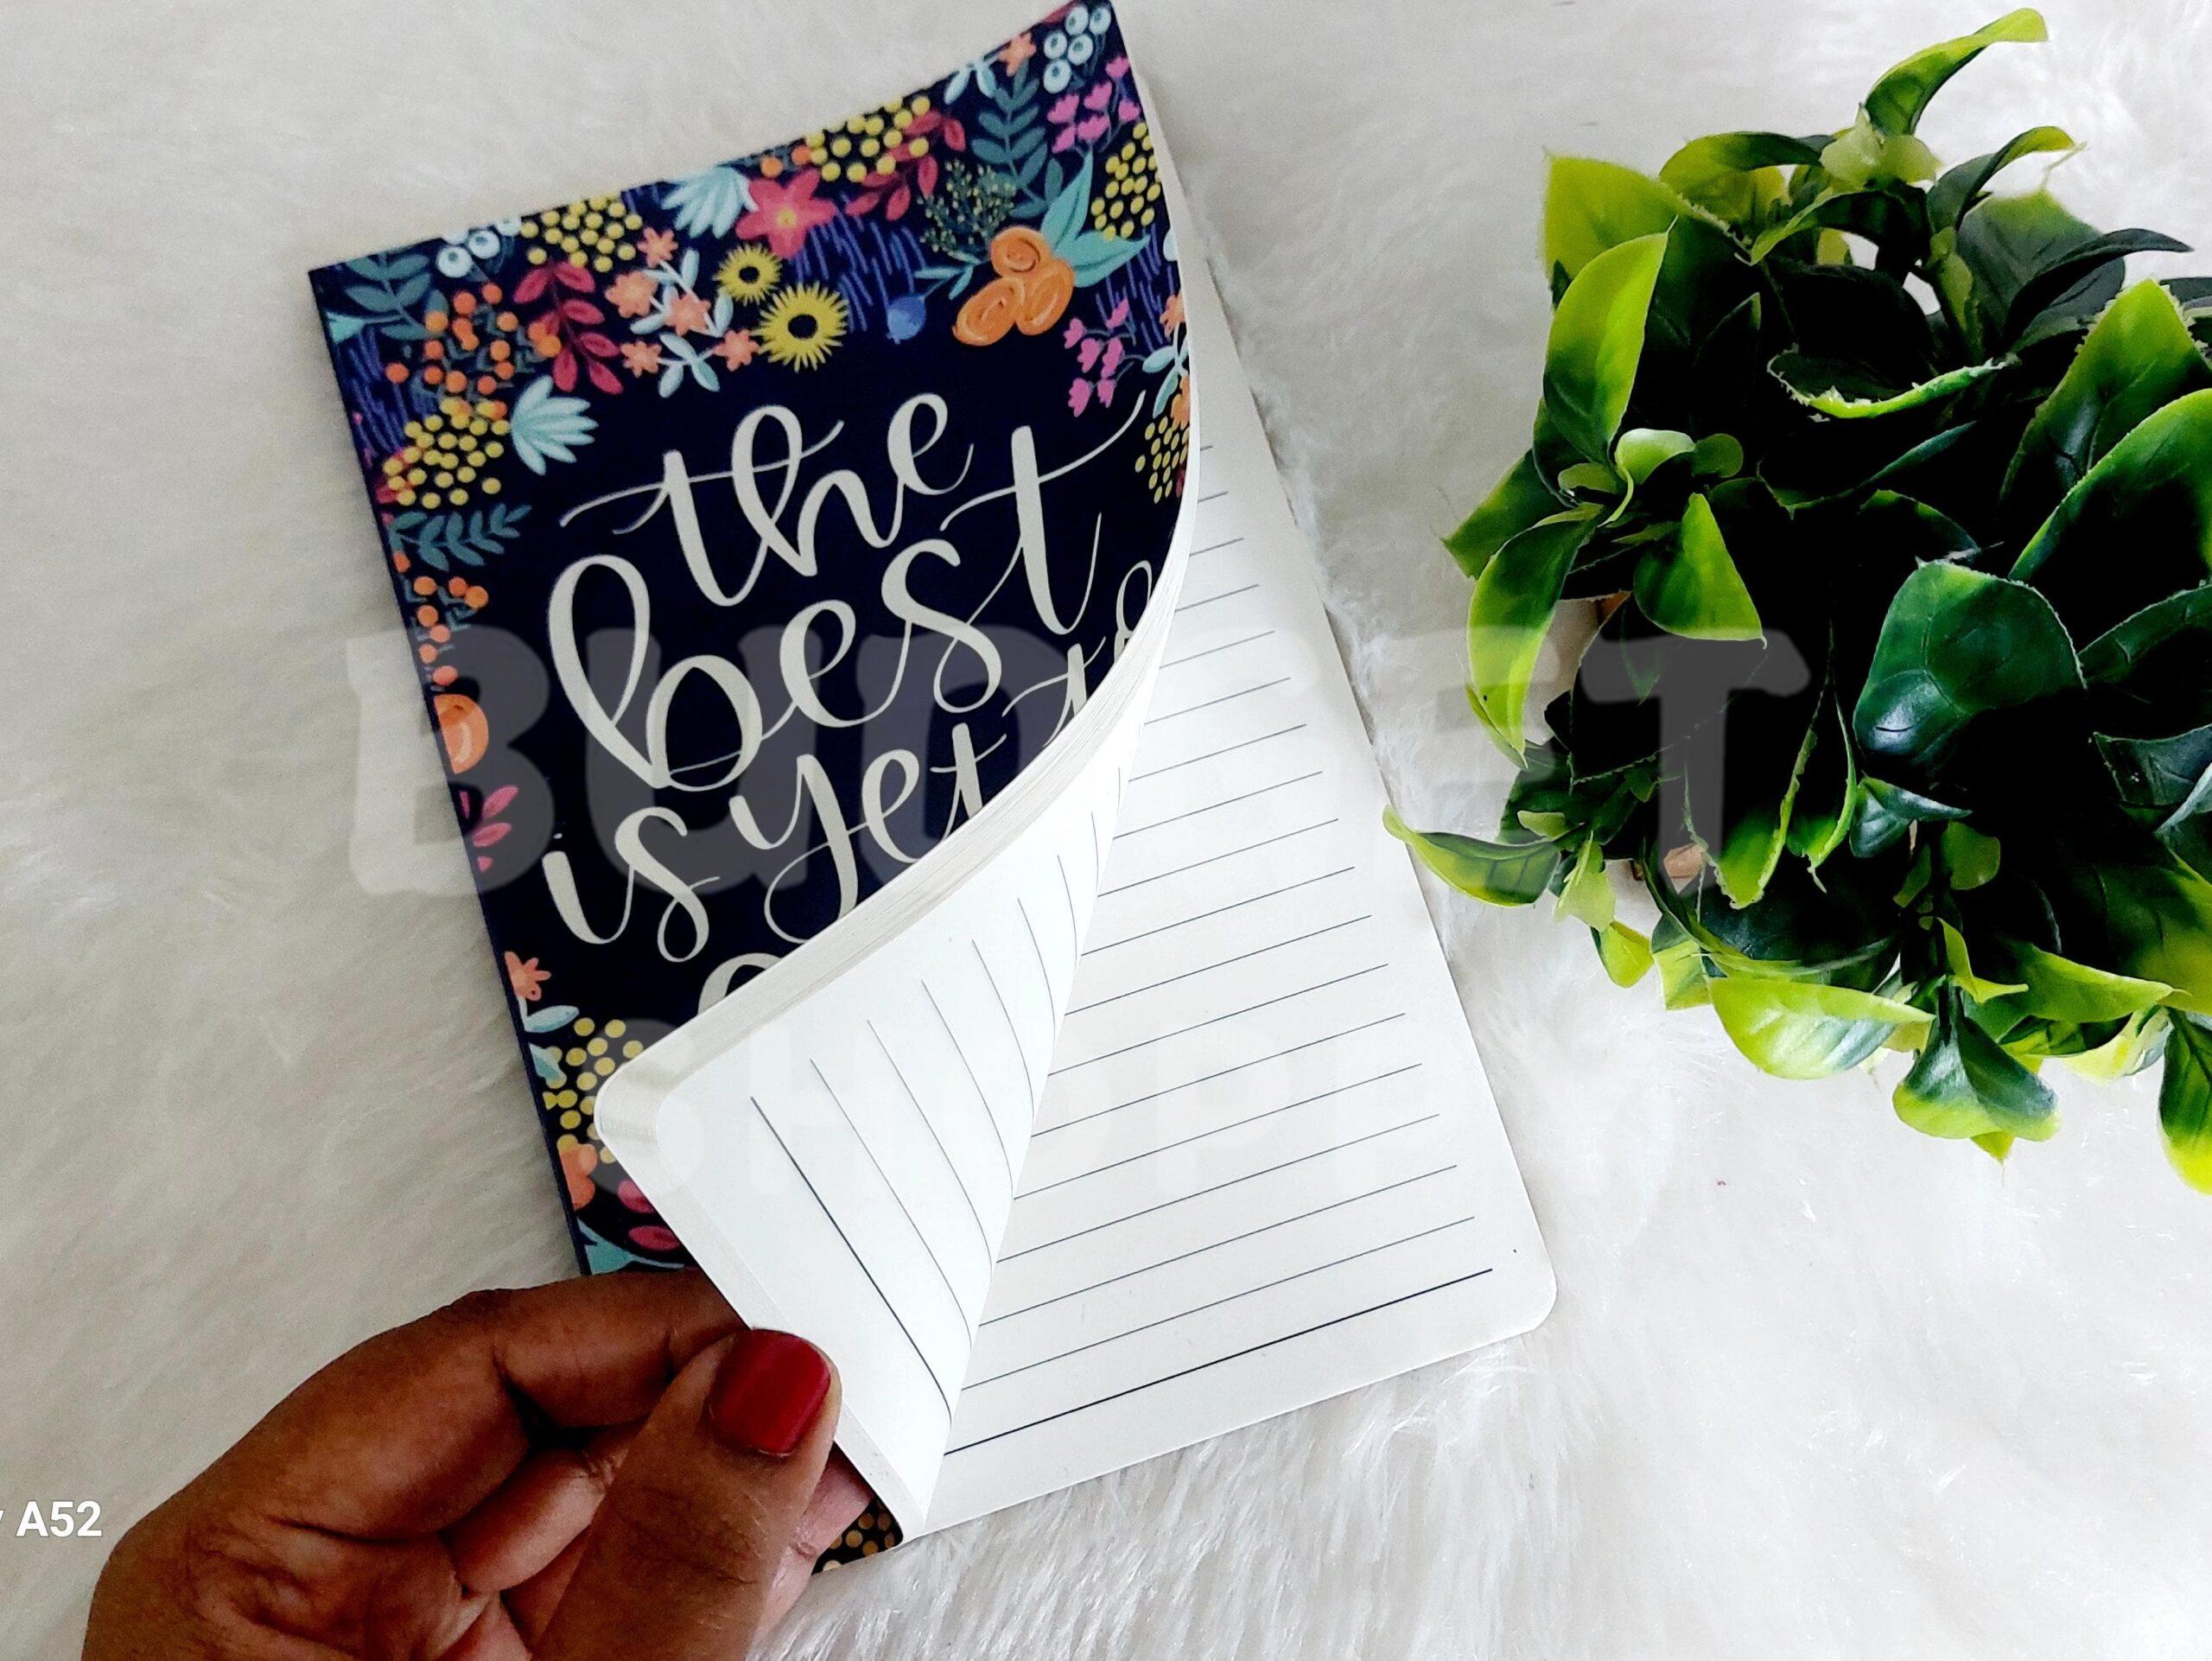 the
best
is yet
BUDGET
SHOP
A52